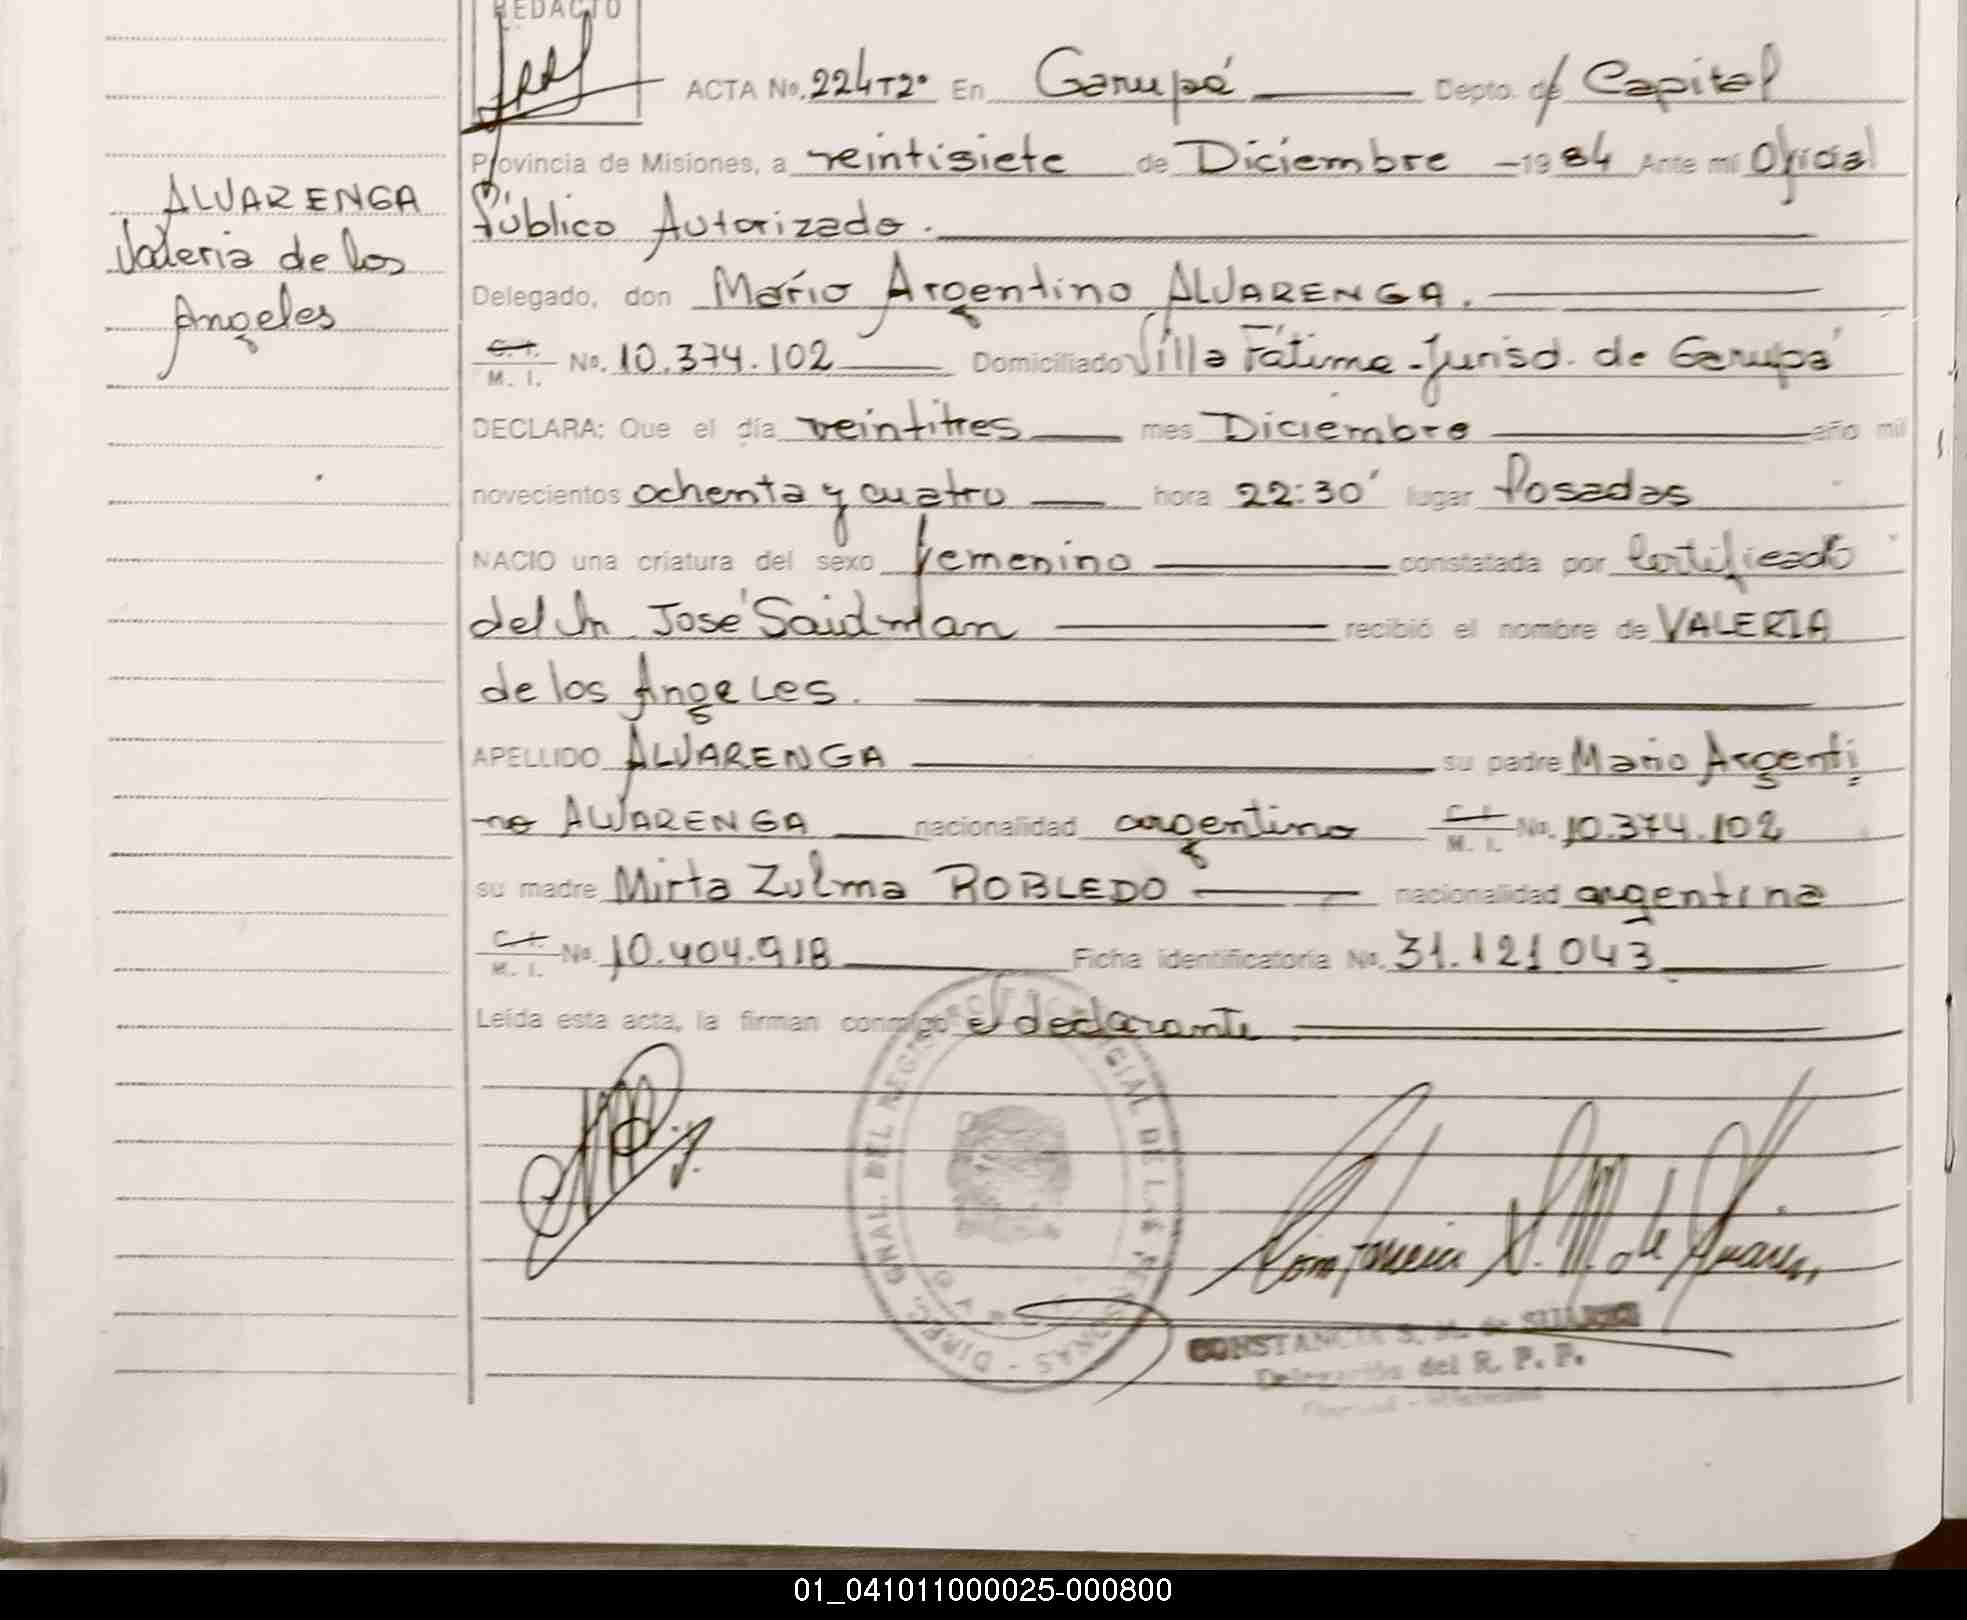 REDACTO
ACTA No. 224T2º En Garupá Depto. de Capital
Provincia de Misiones, a veintisiete de Diciembre -1984 Ante mi Oficial
Público Autorizado.
Delegado, don Mario Argentino ALVARENGA.
C. I. M. I. No. 10.374.102 Domiciliado Villa Fátima - Jurisd. de Garupá
DECLARA: Que el día veintitres mes Diciembre año mil
novecientos ochenta y cuatro hora 22:30' lugar Posadas
NACIO una criatura del sexo femenino constatada por Certificado
del Dr. José Saidman recibió el nombre de VALERIA
de los Angeles.
APELLIDO ALVARENGA su padre Mario Argenti
no ALVARENGA nacionalidad argentino C. I. M. I. No. 10.374.102
su madre Mirta Zulma ROBLEDO nacionalidad argentina
C. I. M. I. No. 10.404.918 Ficha identificatoria No. 31.121043
Leída esta acta, la firman conmigo el declarante
ALVARENGA
Valeria de los
Angeles
Constancia S. M. de Suárez
CONSTANCIA S. M. de SUAREZ
Delegación del R. P. P.
DIREC. GNAL. DEL REGISTRO PROVINCIAL DE LAS PERSONAS
01_041011000025-000800